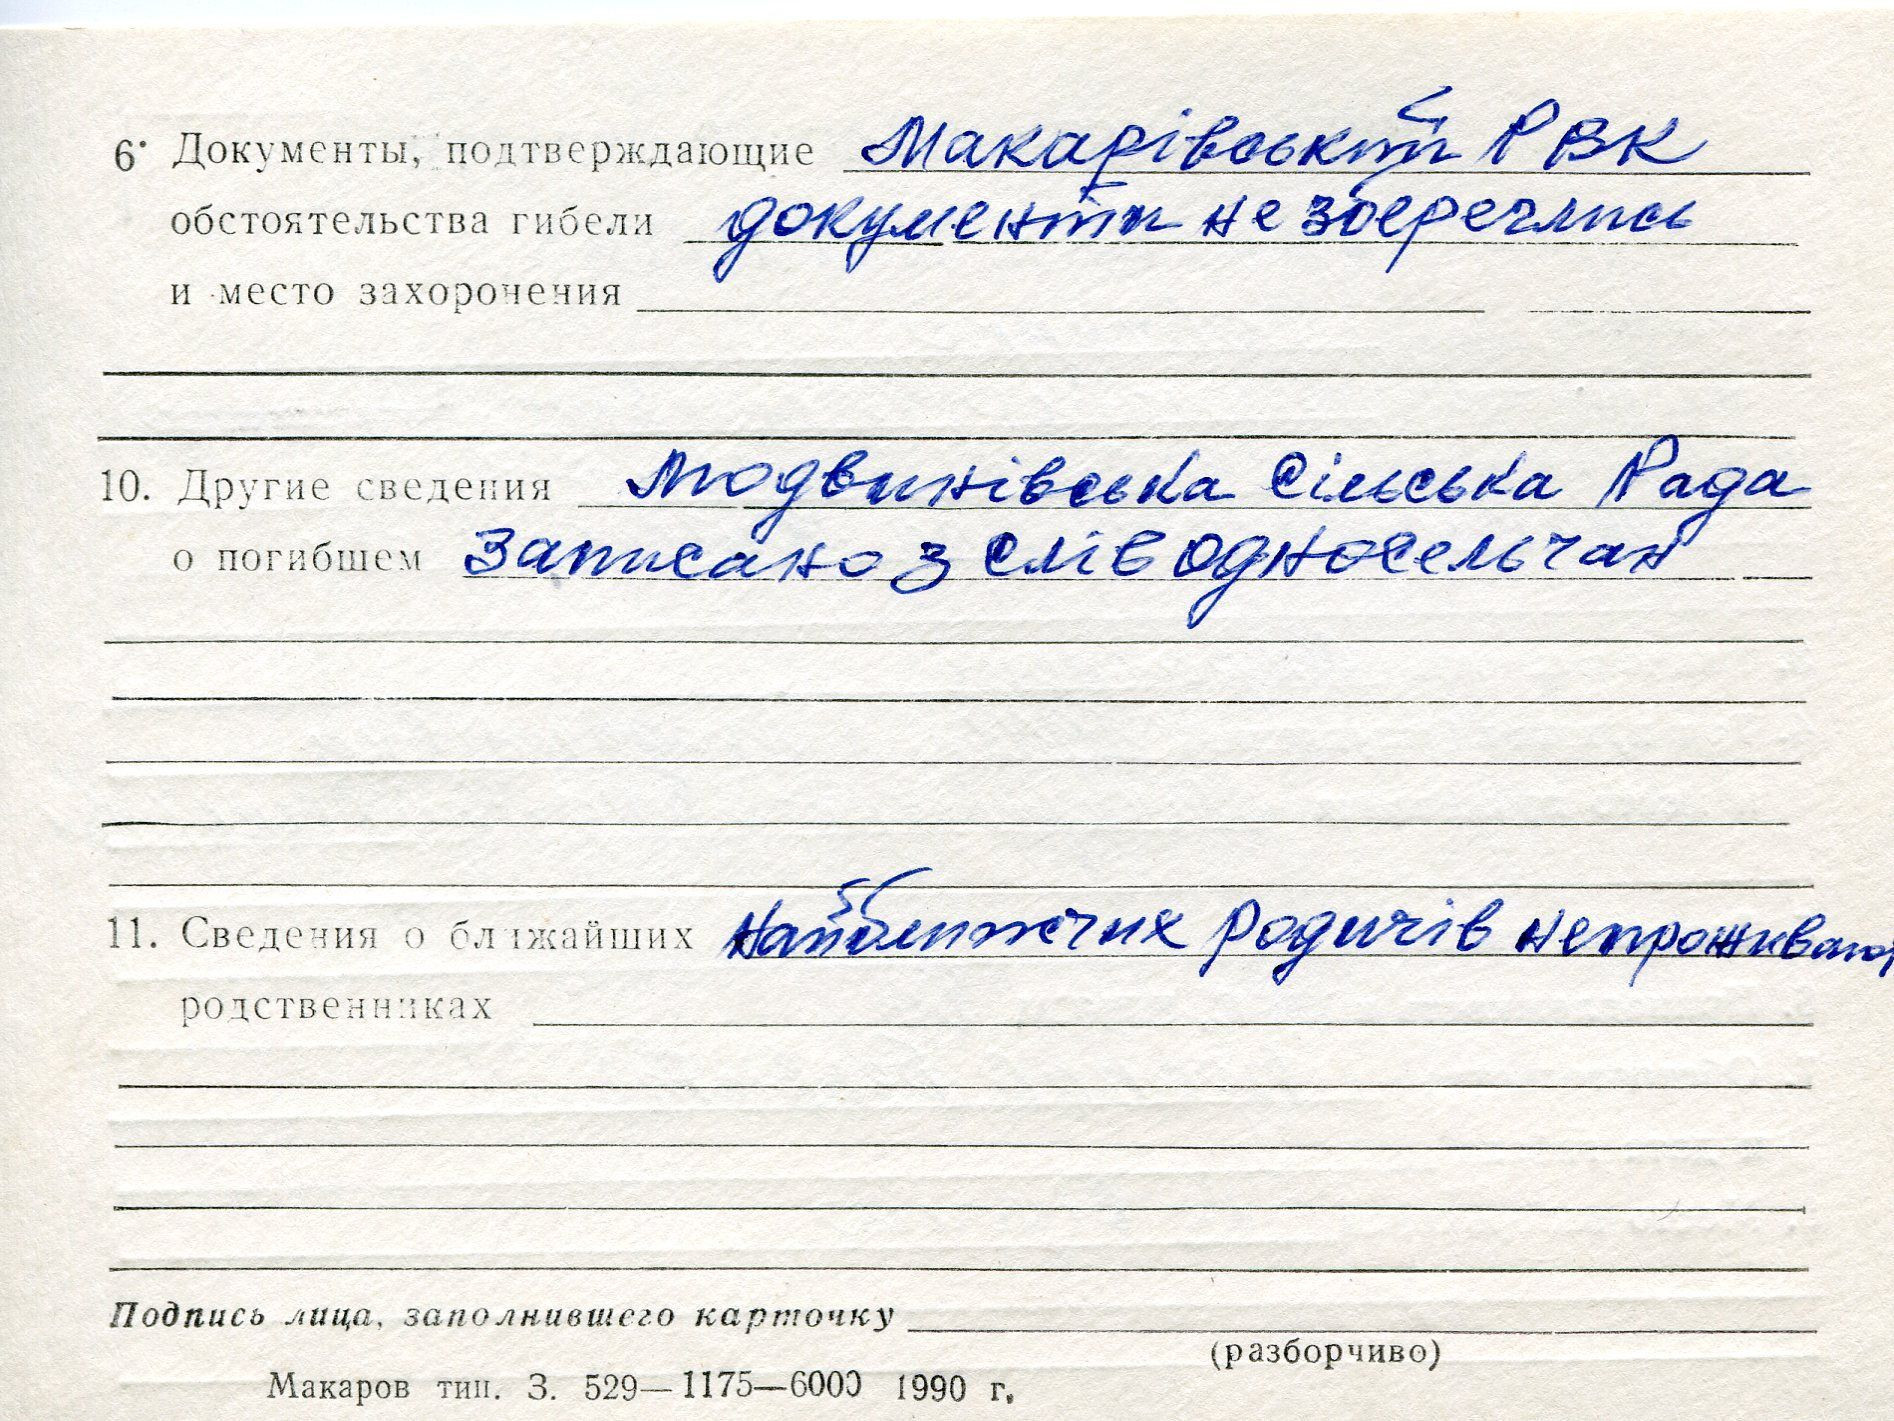 6. Документы, подтверждающие Макарівський РВК
обстоятельства гибели документи не збереглись
и место захоронения
10. Другие сведения Людвинівська Сільська Рада
о погибшем Записано з слів односельчан
11. Сведения о ближайших Найближчих родичів непроживают
родственниках
Подпись лица, заполнившего карточку
(разборчиво)
Макаров тип. З. 529—1175—6000 1990 г.